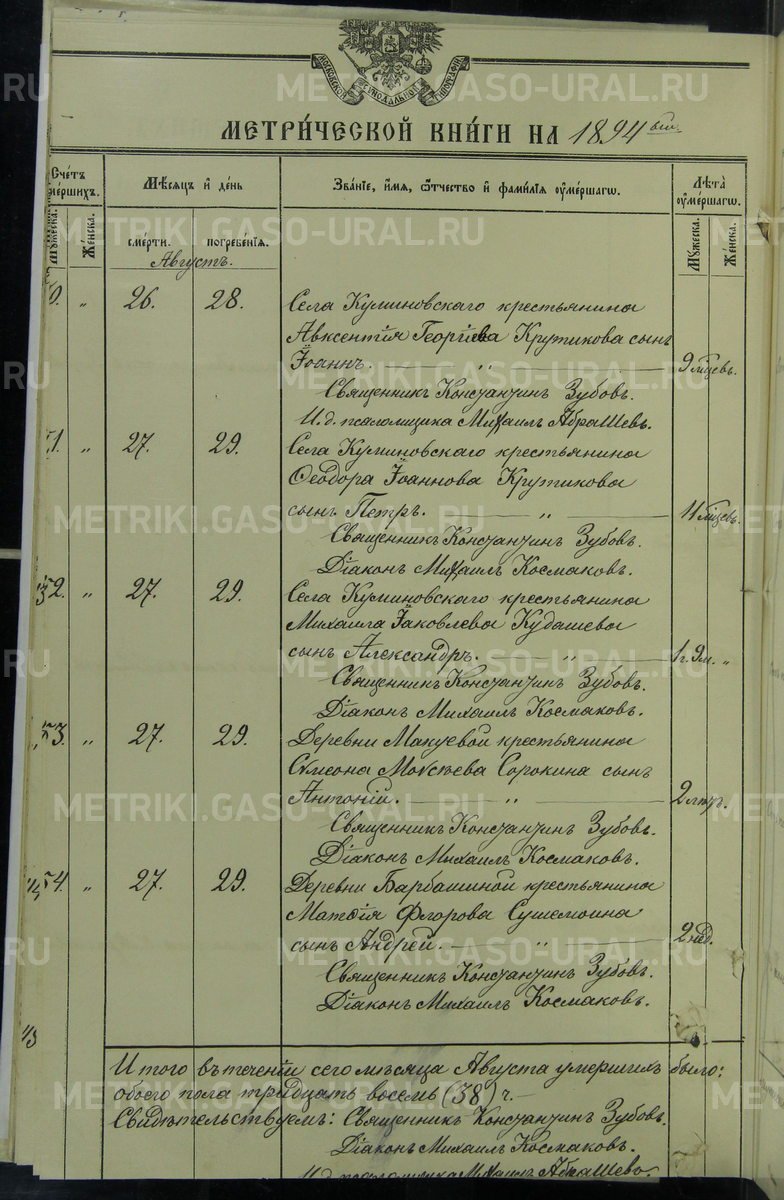 МОСКОВСКОЙ СѴНОДАЛЬНОЙ ТИПОГРАФІИ
МЕТРИ́ЧЕСКОЙ КНИ́ГИ НА 1894
Сче́тъ
Мѣ́сяцъ и҆ де́нь
Зва́нїе, и҆́мя, ѻ҆́тчество и҆ фами́лїя ᲂу҆ме́ршагѡ.
Лѣ́та
ᲂу҆ме́ршагѡ.
Же́нска.
сме́рти.
погребе́нїя.
Мꙋ́жеска
Же́нска.
Августъ.
0. „ 26. 28. Села Куминовскаго крестьянина
Авксентія Георгіева Крутикова сынъ
Іоаннъ. „ 9 мѣсцевъ.
Священникъ Константинъ Зубовъ.
И.д. псаломщика Михаилъ Абрашевъ.
51. „ 27. 29. Села Куминовскаго крестьянина
Ѳеодора Іоаннова Крутикова
сынъ Петръ. „ 11 мѣсцевъ.
Священникъ Константинъ Зубовъ.
Діаконъ Михаилъ Космаковъ.
52. „ 27. 29. Села Куминовскаго крестьянина
Михаила Іаковлева Кудашева
сынъ Александръ. „ 1 г. 9 м. „
Священникъ Константинъ Зубовъ.
Діаконъ Михаилъ Космаковъ.
53. „ 27. 29. Деревни Макуевой крестьянина
Сѵмеона Моѵсѣева Сорокина сынъ
Антоній. „
Священникъ Константинъ Зубовъ.
Діаконъ Михаилъ Космаковъ.
54. „ 27. 29. Деревни Барбашиной крестьянина
Матѳія Флорова
сынъ Андрей. „ 2 нед.
Священникъ Константинъ Зубовъ.
Діаконъ Михаилъ Космаковъ.
Итого въ теченіи сего мѣсяца Августа умершихъ было:
обоего пола тридцать восемь (38) ч.
Свидѣтельствуемъ: Священникъ Константинъ Зубовъ.
Діаконъ Михаилъ Космаковъ.
И.д. псаломщика Михаилъ Абрашевъ.
METRIKI.GASO-URAL.RU